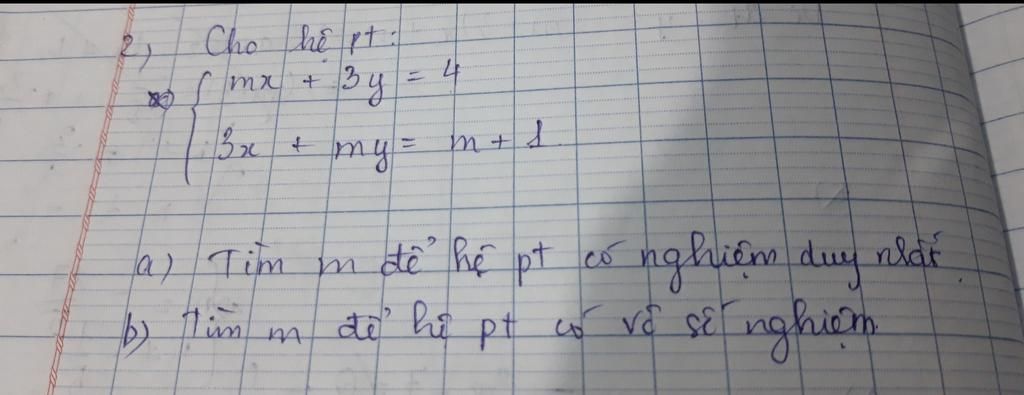 2, Cho hệ pt:
mx + 3y = 4
3x + my = m + 1
a) Tìm m để hệ pt có nghiệm duy nhất.
b) Tìm m để hệ pt có vô số nghiệm.